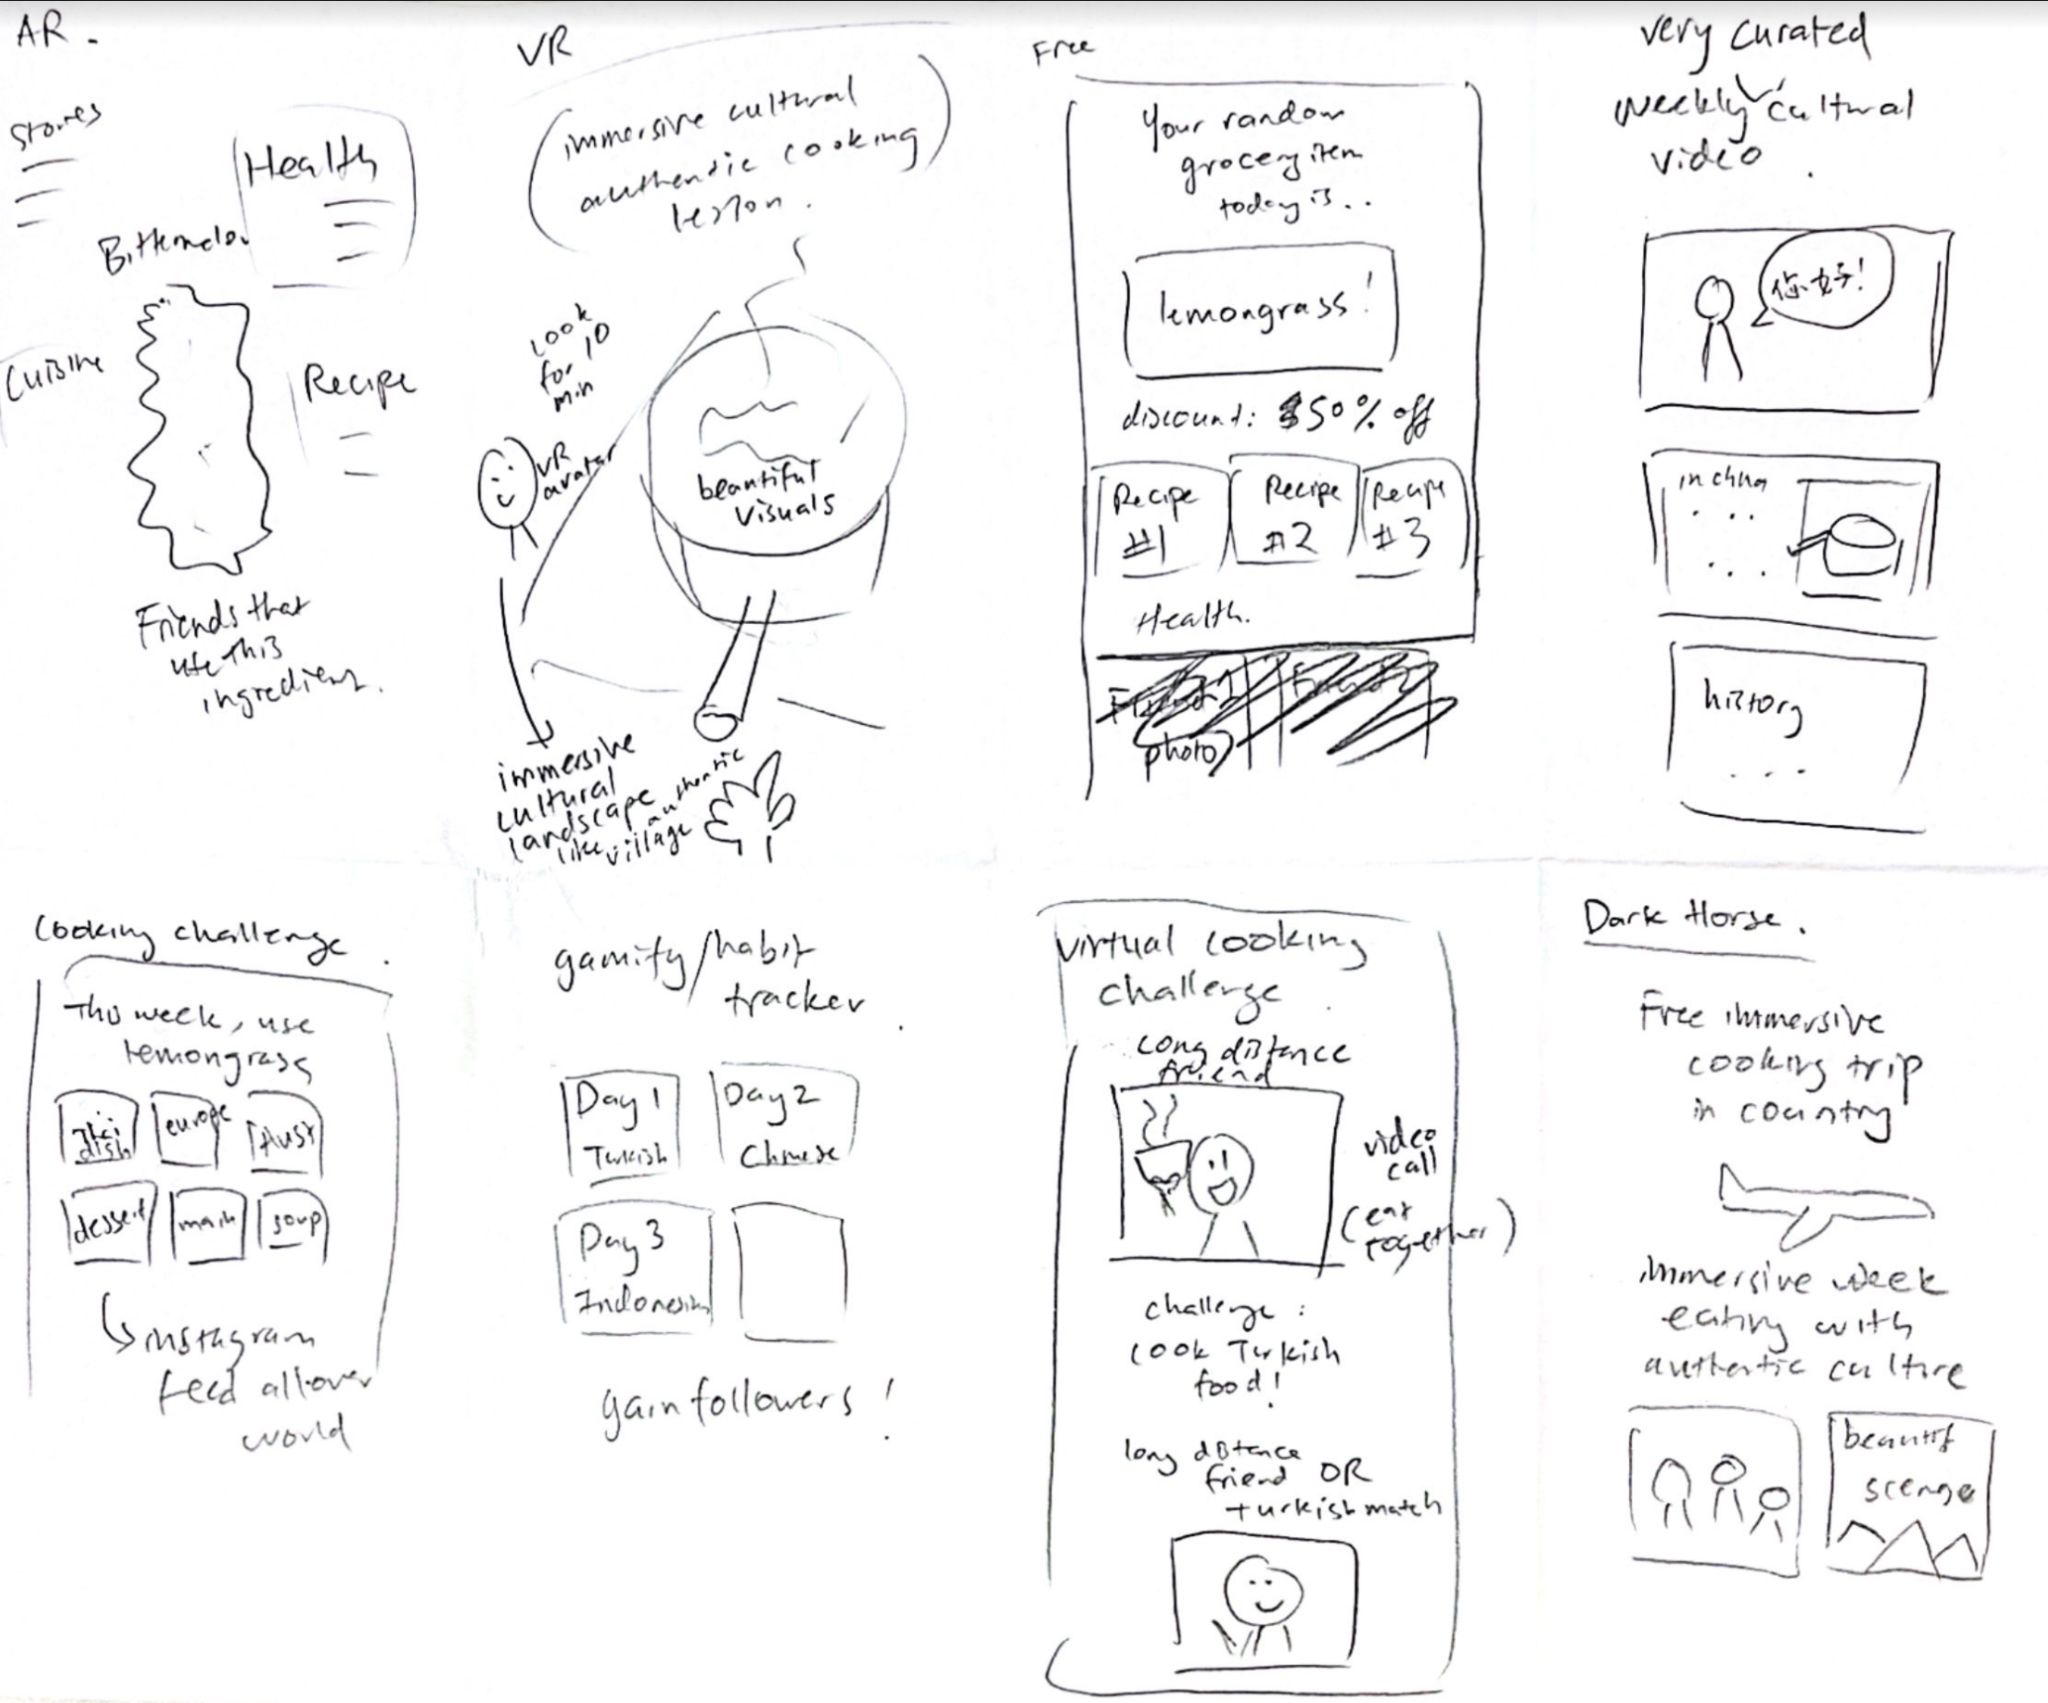 AR.
Stores
Health
Bittermelon
Cuisine
Recipe
Friends that
use this
ingredient.
VR
(immersive cultural
authentic cooking
lesson.)
Look
for 10
min
VR
avatar
beautiful
visuals
immersive
cultural
landscape
like village
authentic
Free
Your random
grocery item
today is..
lemongrass!
discount: 50% off
Recipe
#1
Recipe
#2
Recipe
#3
Health.
photo)
very curated
weekly cultural
video.
你好!
in china
history
...
cooking challenge.
This week, use
lemongrass
dish
europe
dessert
main
soup
instagram
feed all over
world
gamify/habit
tracker.
Day 1
Turkish
Day 2
Chinese
Day 3
Indonesian
gain followers!
virtual cooking
challenge
long distance
friend
video
call
(eat
together)
challenge:
cook Turkish
food!
long distance
friend OR
turkish match
Dark Horse.
Free immersive
cooking trip
in country
immersive week
eating with
authentic culture
beautif
scenge